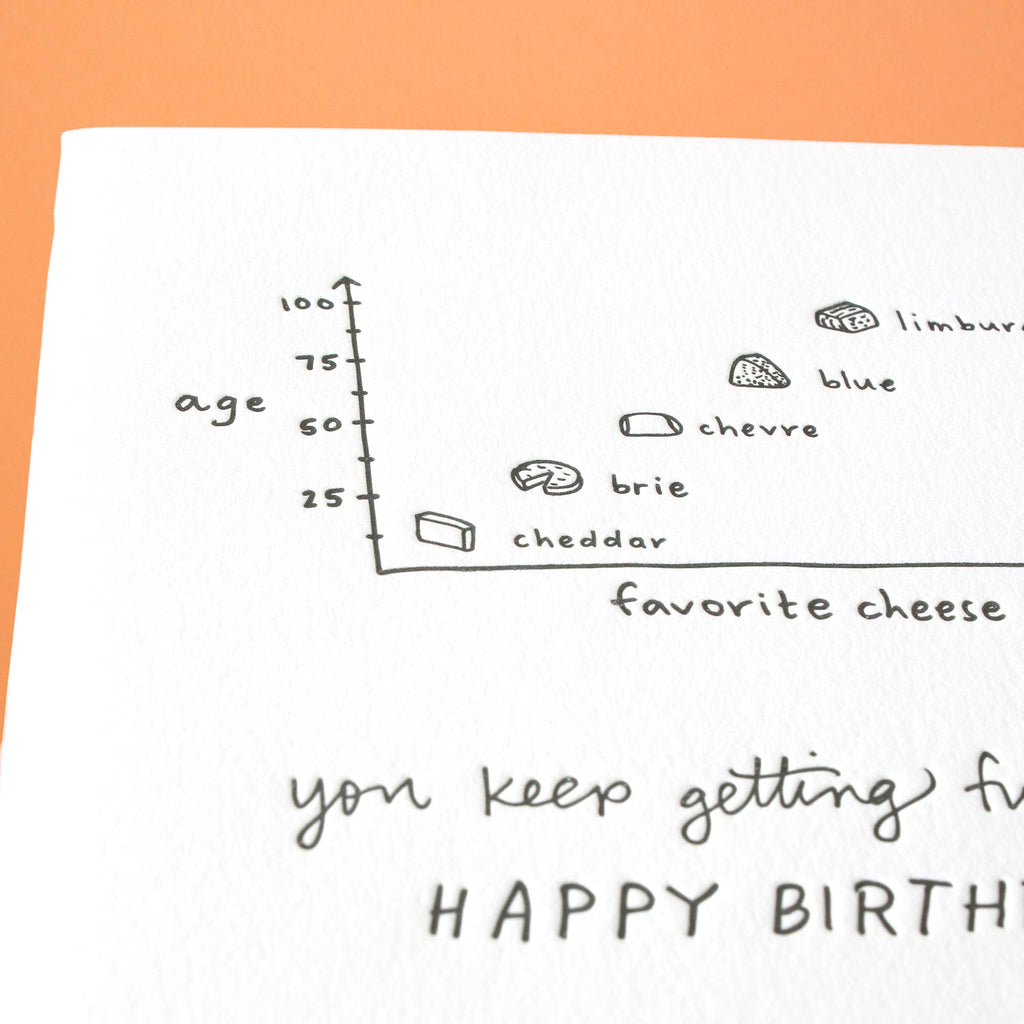 100
limbur
75
blue
age
50
chevre
brie
25
cheddar
favorite cheese
you keep getting
HAPPY BIRTH